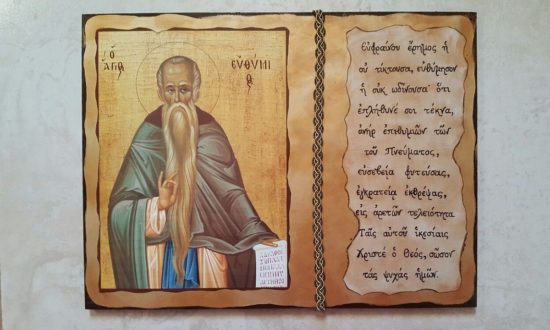 Ὁ
ἍΓΙΟΣ
ΕΥΘΥΜΙ
ΟΣ
Εὐφραίνου ἔρημος ἡ
οὐ τίκτουσα, εὐθύμησον
ἡ οὐκ ὠδίνουσα· ὅτι
ἐπλήθυνέ σοι τέκνα,
ἀνήρ ἐπιθυμιῶν τῶν
τοῦ Πνεύματος,
εὐσεβείᾳ φυτεύσας,
ἐγκρατείᾳ ἐκθρέψας,
εἰς ἀρετῶν τελειότητα
Ταῖς αὐτοῦ ἱκεσίαις
Χριστέ ὁ Θεός, σῶσον
τάς ψυχάς ἡμῶν.